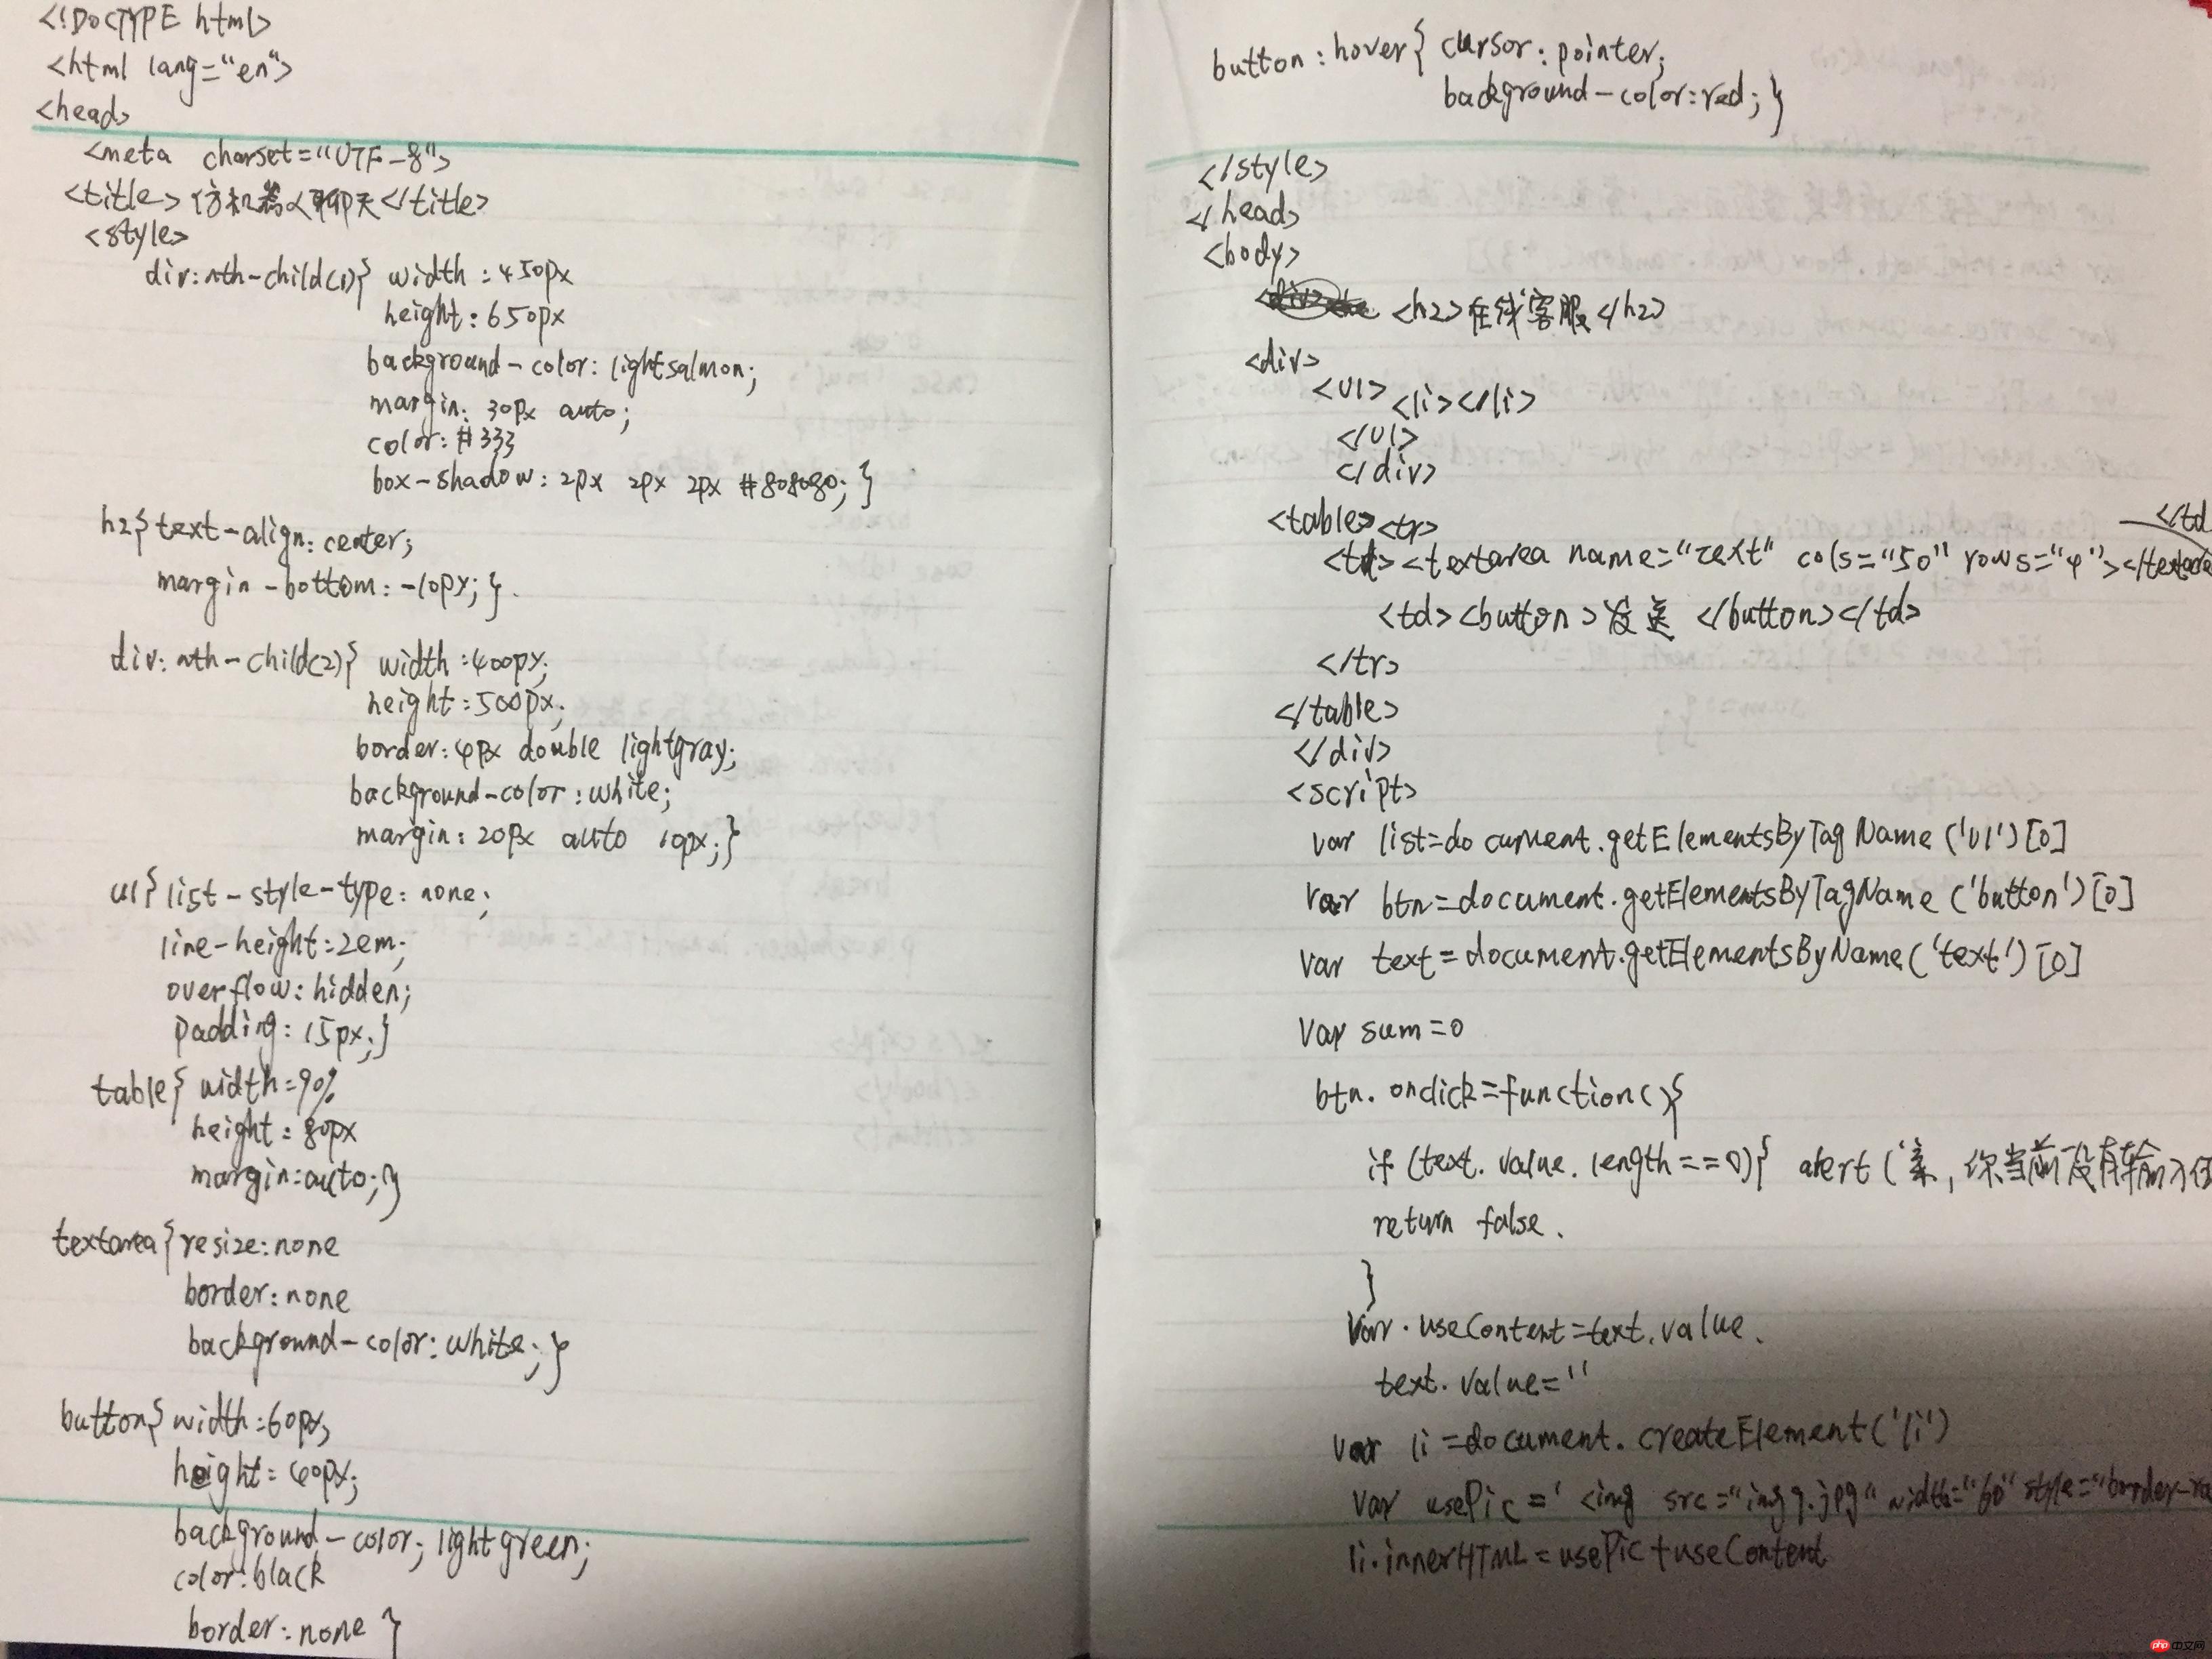 <!DOCTYPE html>
<html lang="en">
<head>
<meta charset="UTF-8">
<title>仿机器人聊天</title>
<style>
div:nth-child(1){ width:450px
height:650px
background-color: lightsalmon;
margin: 30px auto;
color:#333
box-shadow: 2px 2px 2px #808080; }
h2{text-align: center;
margin-bottom: -10px; }.
div:nth-child(2){ width:400px;
height:500px;
border:4px double lightgray;
background-color:white;
margin:20px auto 10px;}
ul{list-style-type: none;
line-height:2em;
overflow:hidden;
padding:15px;}
table{ width=90%
height:80px
margin:auto;}
textarea{resize:none
border:none
background-color:white;}
button{width:60px;
height:40px;
background-color; lightgreen;
color:black
border:none }
button:hover{ cursor:pointer;
background-color:red; }
</style>
</head>
<body>
<h2>在线客服</h2>
<div>
<ul> <li></li>
</ul>
</div>
<table><tr>
</td
<td><textarea name="text" cols="50" rows="4"></textarea
<td><button>发送</button></td>
</tr>
</table>
</div>
<script>
var list=document.getElementsByTagName('ul')[0]
var btn=document.getElementsByTagName('button')[0]
var text=document.getElementsByName('text')[0]
var sum=0
btn.onclick=function(){
if (text.value.length==0){ alert('亲,你当前没有输入任
return false.
}
var.useContent=text.value.
text.value=''
var li=document.createElement('li')
var usePic=' <img src="img9.jpg" width="60" style="border-ra
li.innerHTML=usePic+useContent
php中文网